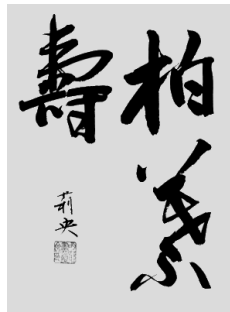 柏葉
壽
莉央